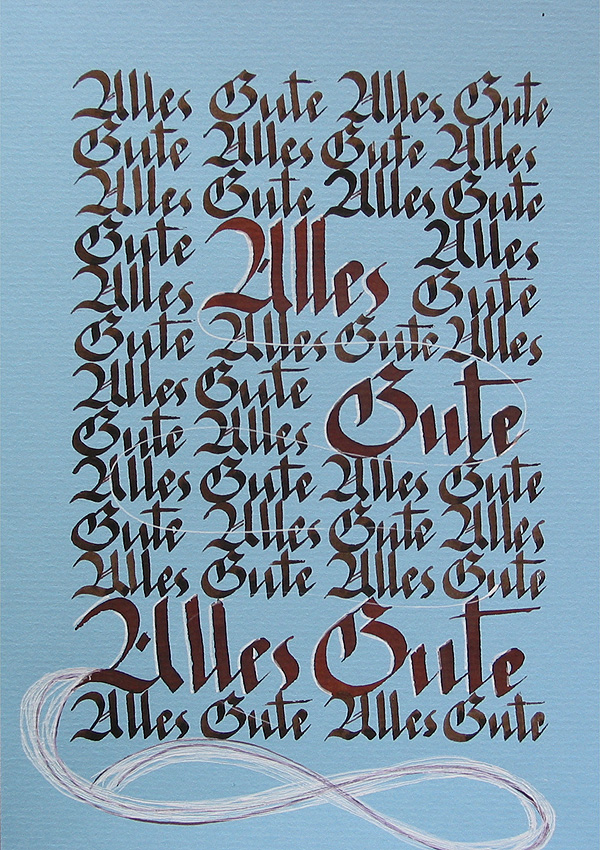 Alles Gute Alles Gute
Gute Alles Gute Alles
Alles Gute Alles Gute
Gute Alles Alles
Alles Gute
Gute Alles Gute Alles
Alles Gute Gute
Gute Alles
Alles Gute Alles Gute
Gute Alles Gute Alles
Alles Gute Alles Gute
Alles Gute
Alles Gute Alles Gute